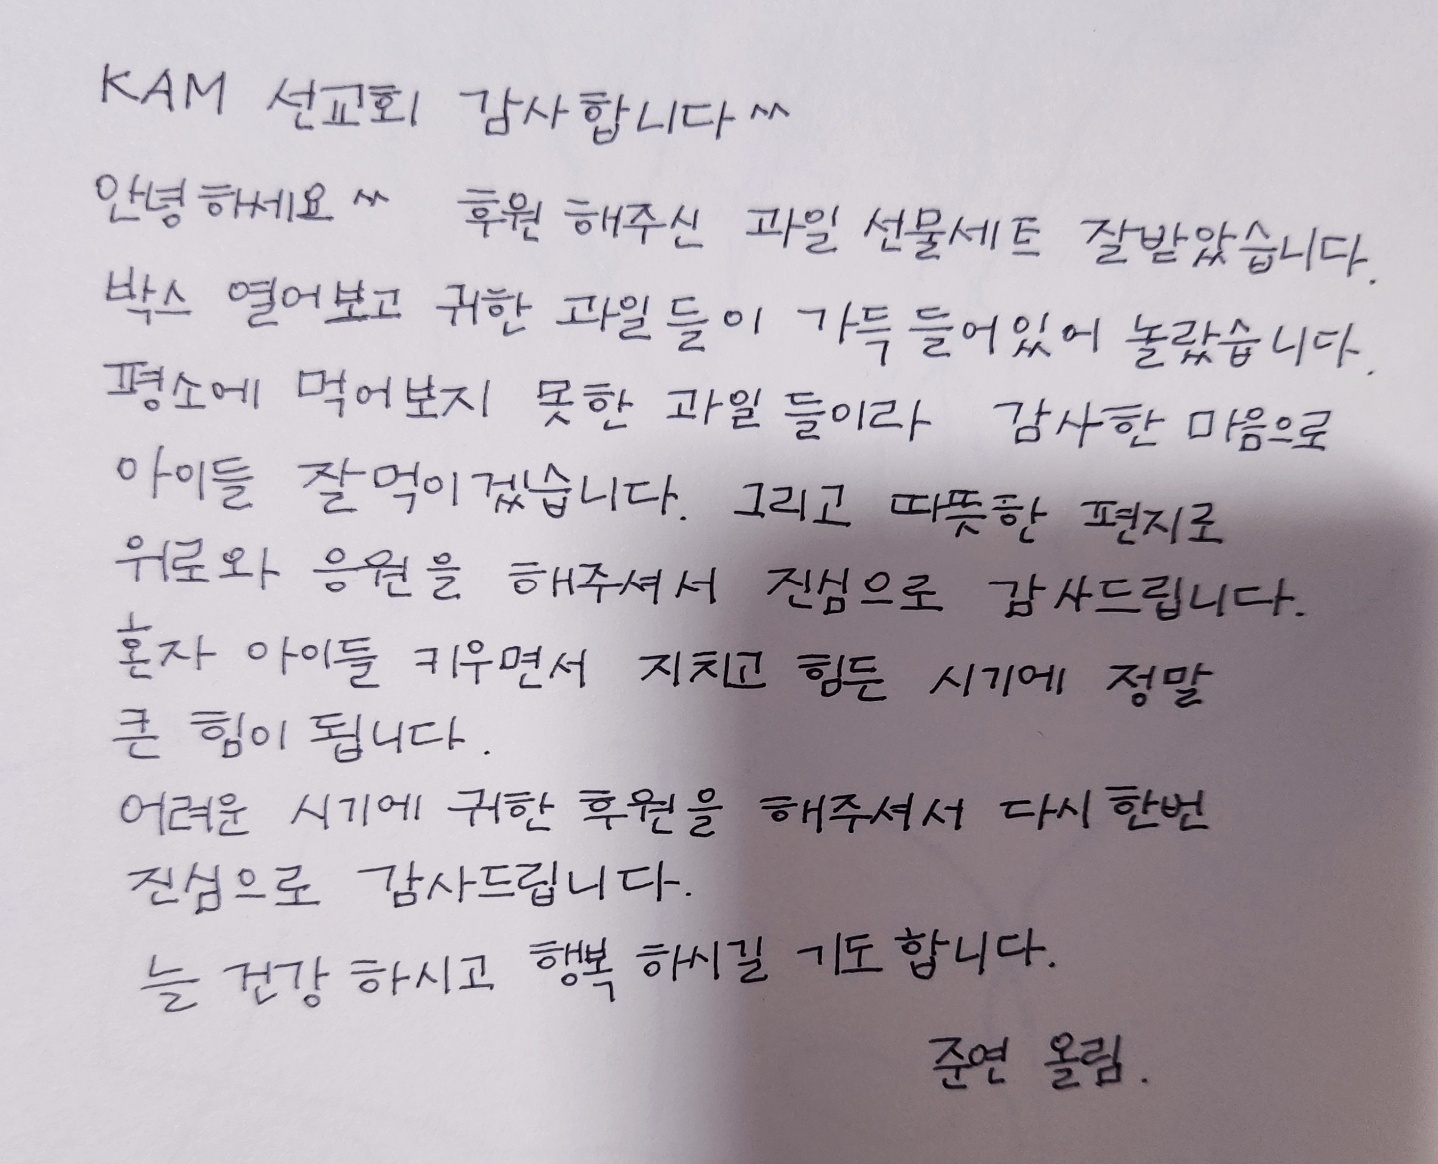 KAM 선교회 감사합니다^^
안녕하세요^^ 후원 해주신 과일 선물세트 잘받았습니다.
박스 열어보고 귀한 과일들이 가득 들어있어 놀랐습니다.
평소에 먹어보지 못한 과일들이라 감사한 마음으로
아이들 잘먹이겠습니다. 그리고 따뜻한 편지로
위로와 응원을 해주셔서 진심으로 감사드립니다.
혼자 아이들 키우면서 지치고 힘든 시기에 정말
큰 힘이 됩니다.
어려운 시기에 귀한 후원을 해주셔서 다시한번
진심으로 감사드립니다.
늘 건강 하시고 행복 하시길 기도합니다.
준연 올림.